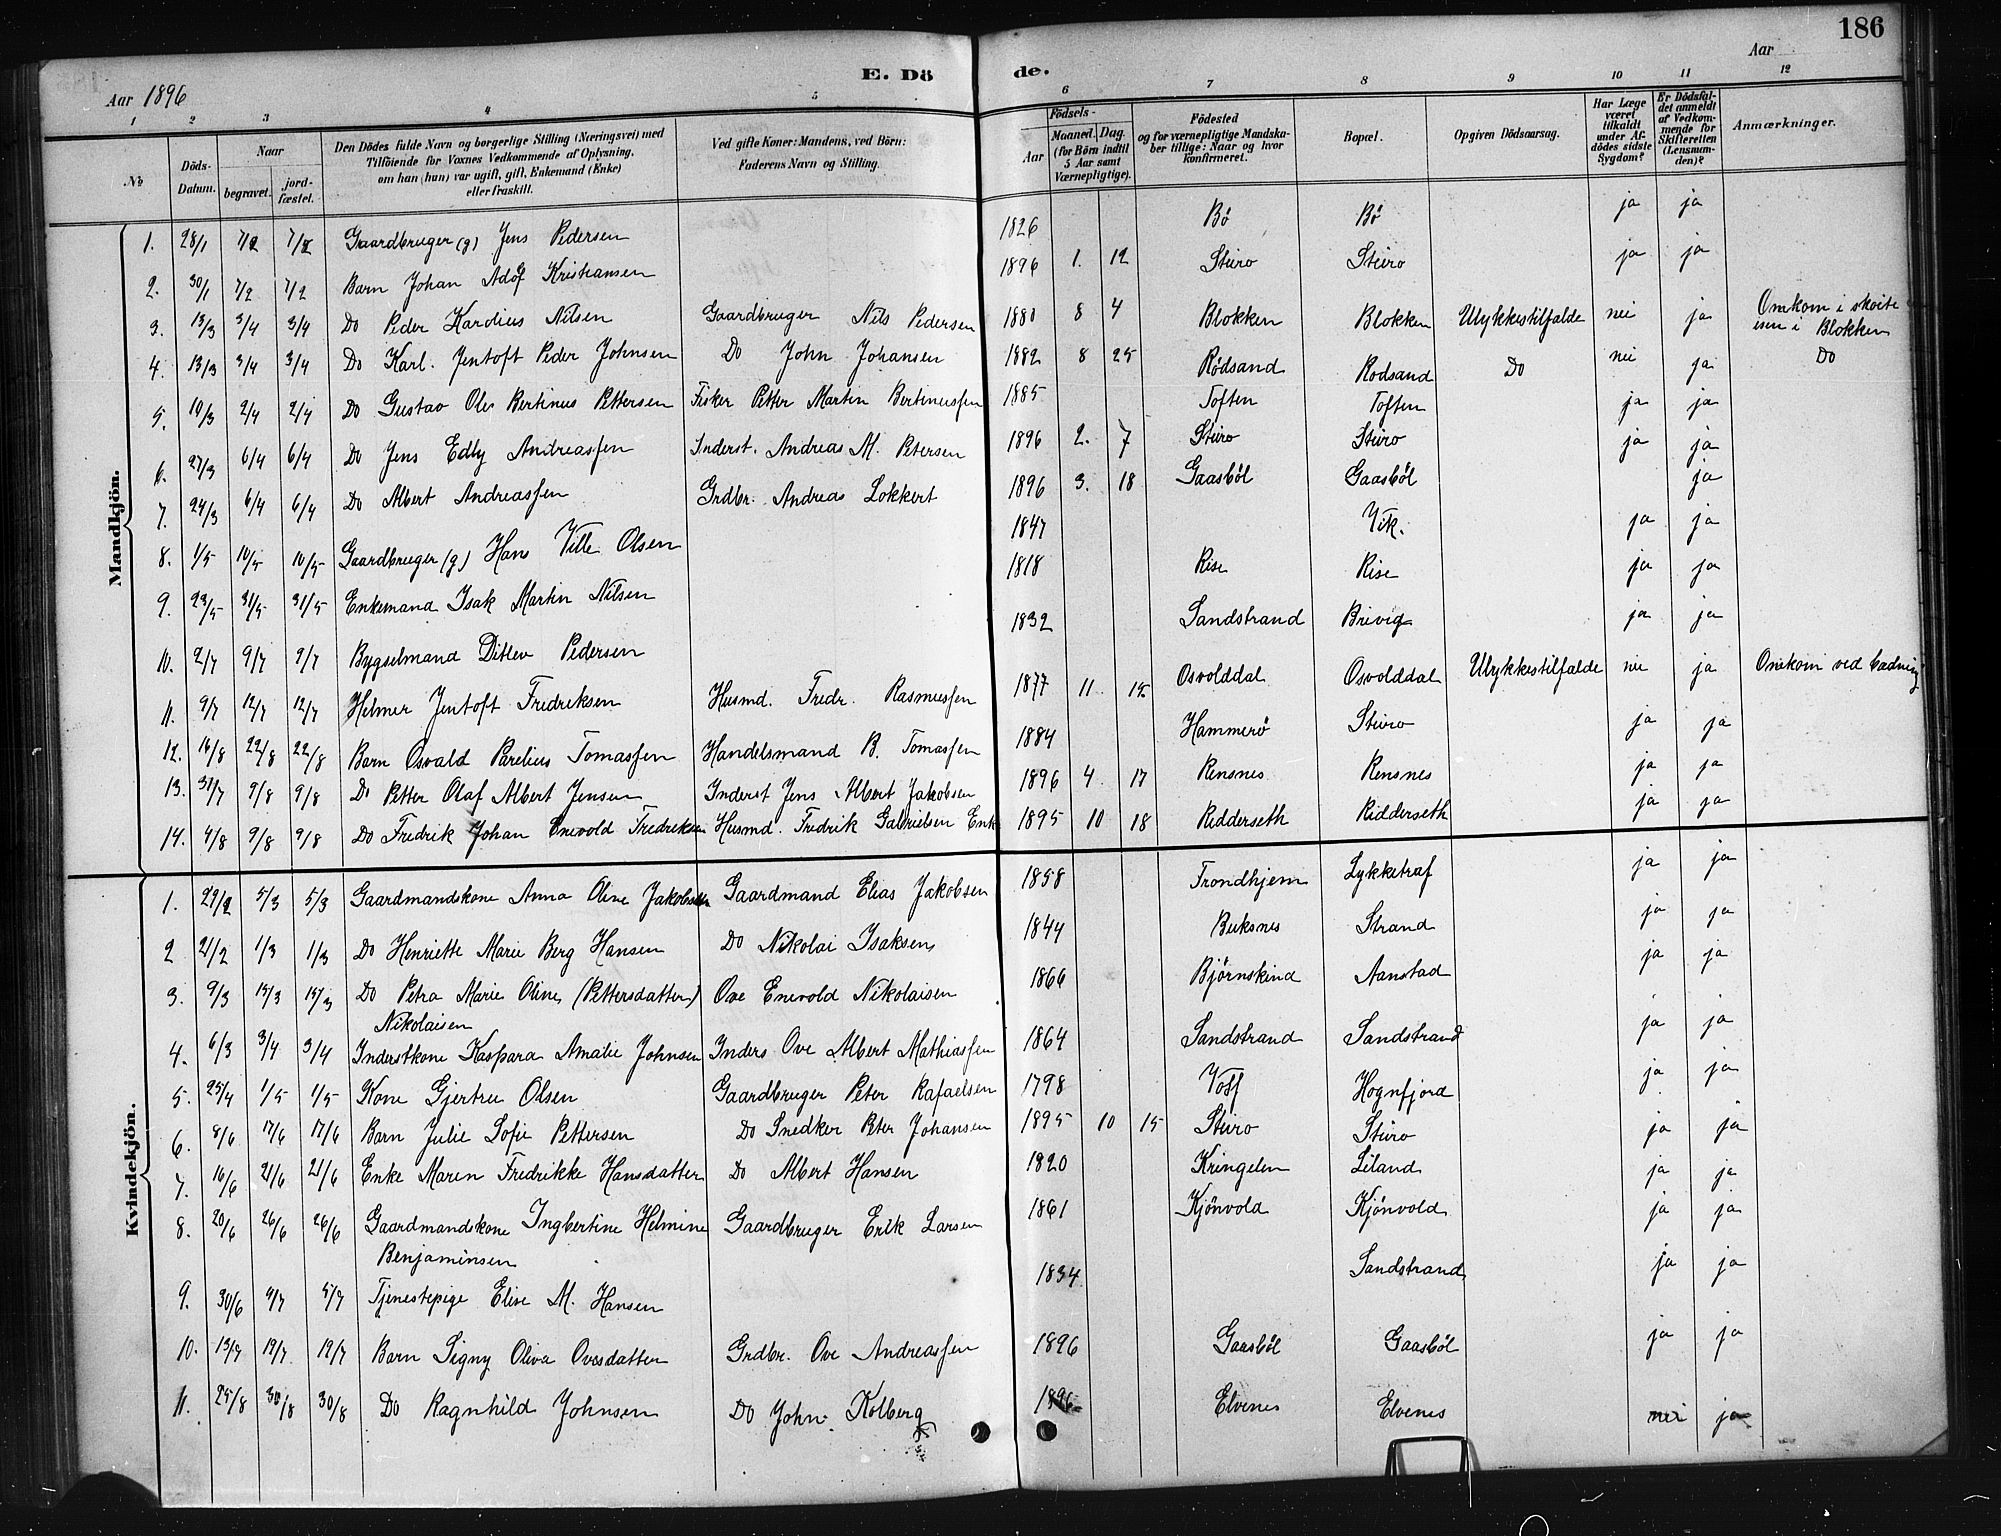 186
E. Dö de.
Aar 1896
Aar
1 2 3 4 5 6 7 8 9 10 11 12
No
Döds-Datum.
Naar
begravet. jordfæstet.
Den Dödes fulde Navn og borgerlige Stilling (Næringsvei) med Tilföiende for Voxnes Vedkommende af Oplysning, om han (hun) var ugift, gift, Enkemand (Enke) eller fraskilt.
Ved gifte Koner: Mandens, ved Börn: Faderens Navn og Stilling.
Födsels-
Aar
Maaned. Dag.
(for Börn indtil 5 Aar samt Værnepligtige).
Födested og for værnepligtige Mandskaber tillige: Naar og hvor konfirmeret.
Bopæl.
Opgiven Dödsaarsag.
Har Læge været tilkaldt under Afdödes sidste Sygdom?
Er Dödsfaldet anmeldt af Vedkommende for Skifteretten (Lensmanden)?
Anmærkninger.
Mandkjön.
1. 28/1 7/2 7/2 Gaardbruger (g) Jens Pedersen 1826 Bö Bö ja ja
2. 30/1 7/2 7/2 Barn Johan Adof Kristiansen 1896 1. 12 Stüro Stüro ja ja
3. 13/3 3/4 3/4 Do Peder Kardius Nilsen Gaardbruger Nils Pedersen 1880 8 4 Blokken Blokken Ulykkestilfalde nei ja Omkom i skoite isen i Blokken
4. 13/3 3/4 3/4 Do Karl. Jentoft Peder Johnsen Do John Johansen 1882 8 25 Rödsand Rodsand Do nei ja Do
5. 10/3 2/4 2/4 Do Gustav Ole Bertinus Pettersen Fisker Petter Martin Bertinussen 1885 Toften Toften ja ja
6. 27/3 6/4 6/4 Do Jens Edly Andreassen Inderst. Andreas M. Petersen 1896 2. 7 Stüro Stüro ja ja
7. 24/3 6/4 6/4 Do Albert Andreassen Grdbr. Andreas Lokkert 1896 3. 18 Gaasböl Gaasböl ja
8. 1/5 10/5 10/5 Gaardbruger (g) Hans Ville Olsen 1847 Vik. ja ja
9. 23/5 31/5 31/5 Enkemand Isak Martin Nilsen 1818 Rise Rise ja ja
10. 2/7 9/7 9/7 Bygselmand Ditlev Pedersen 1832 Sandstrand Brivig ja ja
11. 9/7 12/7 12/7 Helmer Jentoft Fredriksen Husmd. Fredr. Rasmussen 1877 11 15 Osvolddal Osvolddal Ulykkestilfalde nei ja Omkom ved badning
12. 16/8 22/8 22/8 Barn Osvald Parelius Tomassen Handelsmand B. Tomassen 1884 Hammerö Stüro ja ja
13. 31/7 9/8 9/8 Do Petter Olaf Albert Jensen Inderst Jens Albert Jakobsen 1896 4 17 Rensnes Rensnes ja ja
14. 4/8 9/8 9/8 Do Fredrik Johan Enevold Fredriksen Husmd. Fredrik Gabrielsen Enk 1895 10 18 Ridderseth Ridderseth ja ja
Kvindekjön.
1. 29/2 5/3 5/3 Gaardmandskone Anna Oline Jakobsen Gaardmand Elias Jakobsen 1858 Trondhjem Lykketraf ja ja
2 21/2 1/3 1/3 Do Henriette Marie Berg Hansen Do Nikolai Isaksen 1844 Buksnes Strand ja ja
3. 9/3 15/3 15/3 Do Petra Marie Oline (Pettersdatter) Ove Enevold Nikolaisen 1866 Björnskind Aanstad ja ja
Nikolaisen
4. 6/3 3/4 3/4 Inderstkone Kaspara Amalie Johnsen Inders Ove Albert Mathiassen 1864 Sandstrand Sandstrand ja ja
5. 25/4 1/5 1/5 Kone Gjertru Olsen Gaardbruger Peter Rafaelsen 1798 Voss Hognfjord ja ja
6. 8/6 17/6 17/6 Barn Julie Sofie Pettersen Do Snedker Peter Johansen 1895 10 15 Stüro Stüro ja ja
7. 16/6 21/6 21/6 Enke Maren Fredrikke Hansdatter Do Albert Hansen 1820 Kringelen Liland ja ja
8. 20/6 26/6 26/6 Gaardmandskone Ingbertine Helmine Gaardbruger Erik Larsen 1861 Kjönvold Kjönvold ja ja
Benjaminsen
9. 30/6 5/7 Tjenestepige Elise M. Hansen 1834 Sandstrand ja ja
10. 13/7 19/7 19/7 Barn Signy Oliva Ovesdatter Grdbr. Ove Andreassen 1896 Gaasböl Gaasböl ja ja
11. 25/8 30/8 30/8 Do Ragnhild Johnsen Do John Kolberg 1896 Elvenes Elvenes nei ja